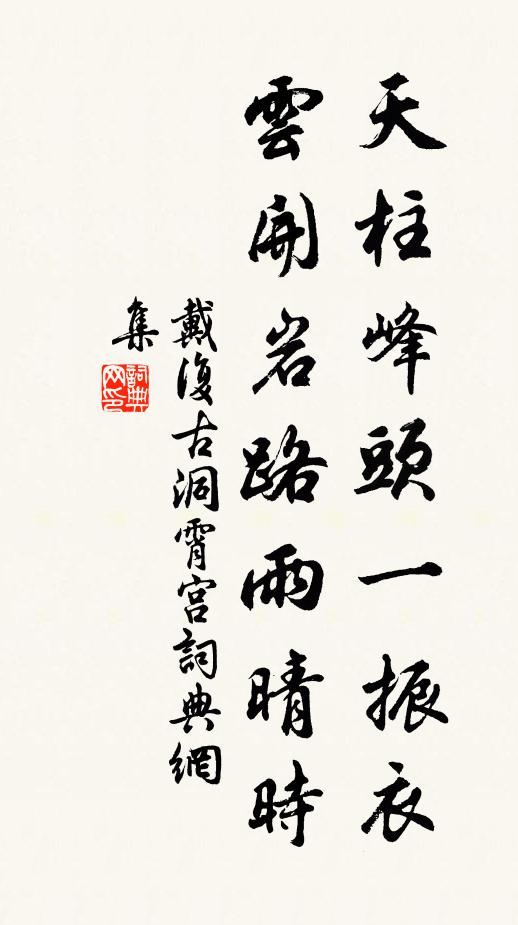 天柱峰頭一振衣
雲開岩路雨晴時
戴復古洞霄宮詞典網
集
詞典
网印